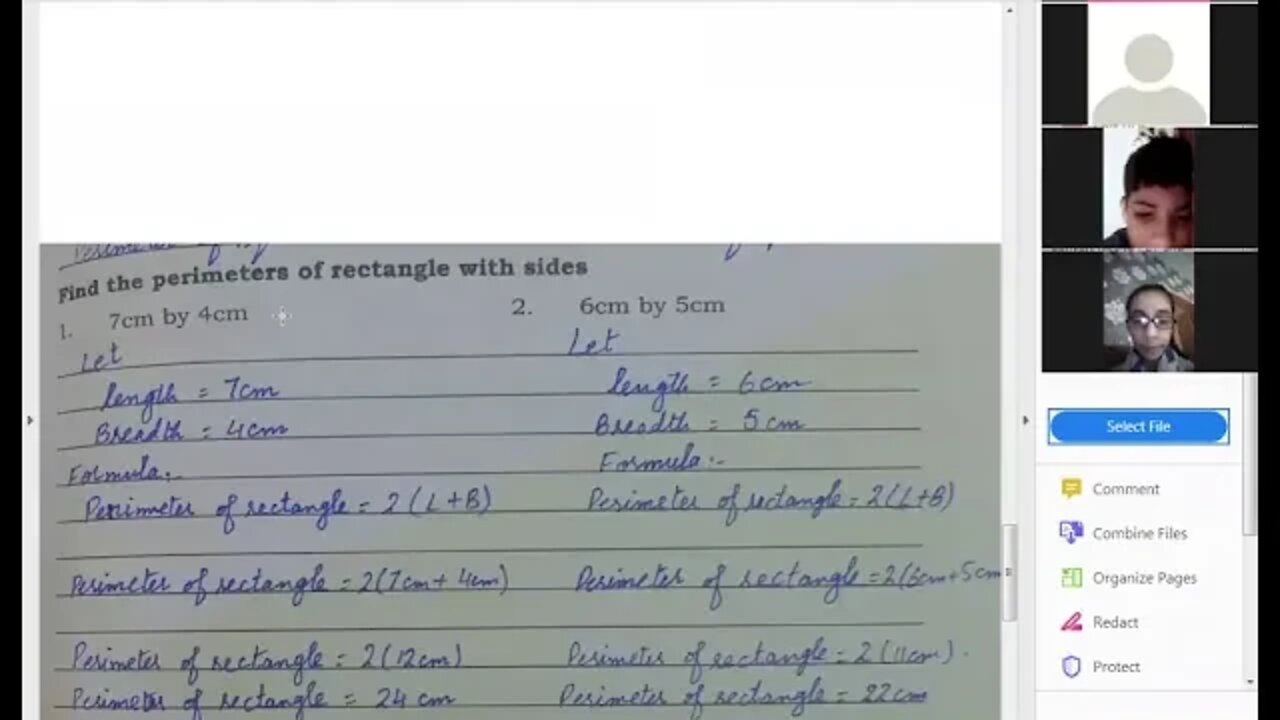 Find the perimeters of rectangle with sides
1. 7cm by 4cm
Let
length = 7cm
Breadth = 4cm
Formula:-
Perimeter of rectangle = 2(L+B)
Perimeter of rectangle = 2(7cm+4cm)
Perimeter of rectangle = 2(12cm)
Perimeter of rectangle = 24 cm
2. 6cm by 5cm
Let
length = 6cm
Breadth = 5cm
Formula:-
Perimeter of rectangle = 2(L+B)
Perimeter of rectangle = 2(6cm+5cm
Perimeter of rectangle = 2(11cm).
Perimeter of rectangle = 22cm
Select File
Comment
Combine Files
Organize Pages
Redact
Protect